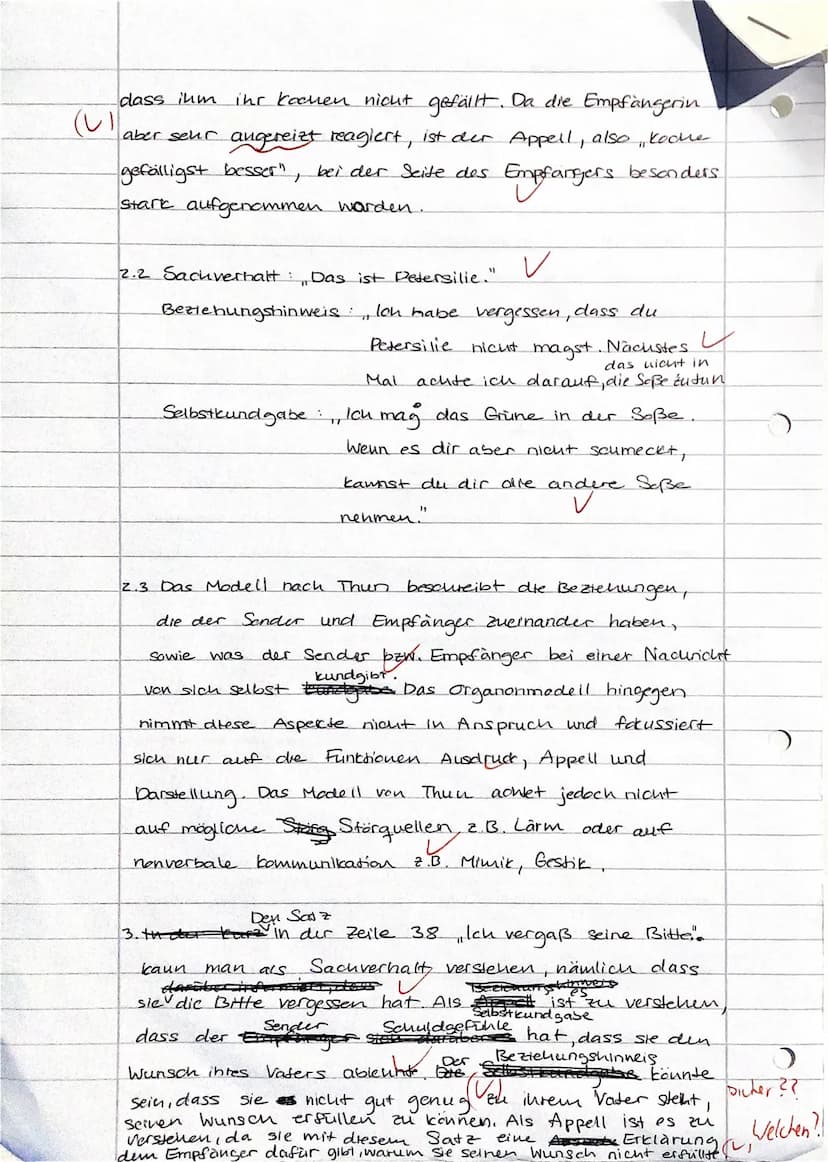 dass ihm ihr Kochen nicht gefällt. Da die Empfängerin
(L) aber sehr angereizt reagiert, ist der Appell, also „koche
gefälligst besser", bei der Seite des Empfängers besonders
stark aufgenommen worden.
2.2 Sachverhalt: „Das ist Petersilie."
Beziehungshinweis: „Ich habe vergessen, dass du
Petersilie nicht magst. Nächstes
das nicht in
Mal achte ich darauf, die Soße zu tun
Selbstkundgabe: „Ich mag das Grüne in der Soße.
Wenn es dir aber nicht schmeckt,
kannst du dir die andere Soße
nehmen."
2.3 Das Modell nach Thun beschreibt die Beziehungen,
die der Sender und Empfänger zueinander haben,
sowie was der Sender bzw. Empfänger bei einer Nachricht
kundgibt.
von sich selbst Das Organonmodell hingegen
nimmt diese Aspekte nicht in Anspruch und fokussiert
sich nur auf die Funktionen Ausdruck, Appell und
Darstellung. Das Modell von Thun achtet jedoch nicht
auf mögliche Störquellen, z.B. Lärm oder auf
nonverbale Kommunikation z.B. Mimik, Gestik.
Den Satz
3. in der Zeile 38 „Ich vergaß seine Bitte".
kann man als Sachverhalt verstehen, nämlich dass
sie die Bitte vergessen hat. Als es ist zu verstehen,
Selbstkundgabe
dass der Sender Schuldgefühle hat, dass sie den
Wunsch ihres Vaters ablehnte. Der Beziehungshinweis könnte
sein, dass sie nicht gut genug zu ihrem Vater steht, sicher??
seinen Wunsch erfüllen zu können. Als Appell ist es zu
verstehen, da sie mit diesem Satz eine Erklärung Welchen?
dem Empfänger dafür gibt, warum sie seinen Wunsch nicht erfüllte.